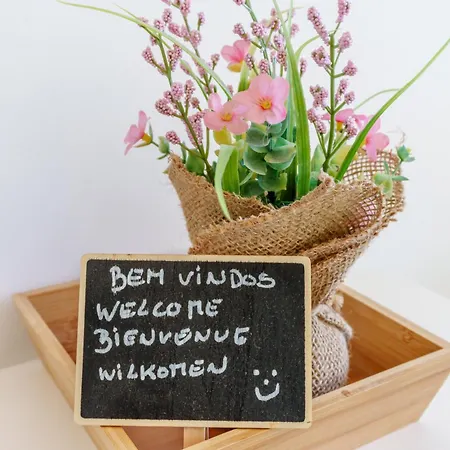 BEM VINDOS
WELCOME
BIENVENUE
WILKOMEN